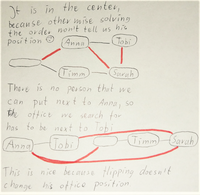 It is in the center,
because otherwise solving
the order won't tell us his
position ☺
Anna Tobi
Timm Sarah
There is no person that we
can put next to Anna, so
the office we search for
has to be next to Tobi
Anna Tobi Timm Sarah
This is nice because flipping doesn't
change his office position